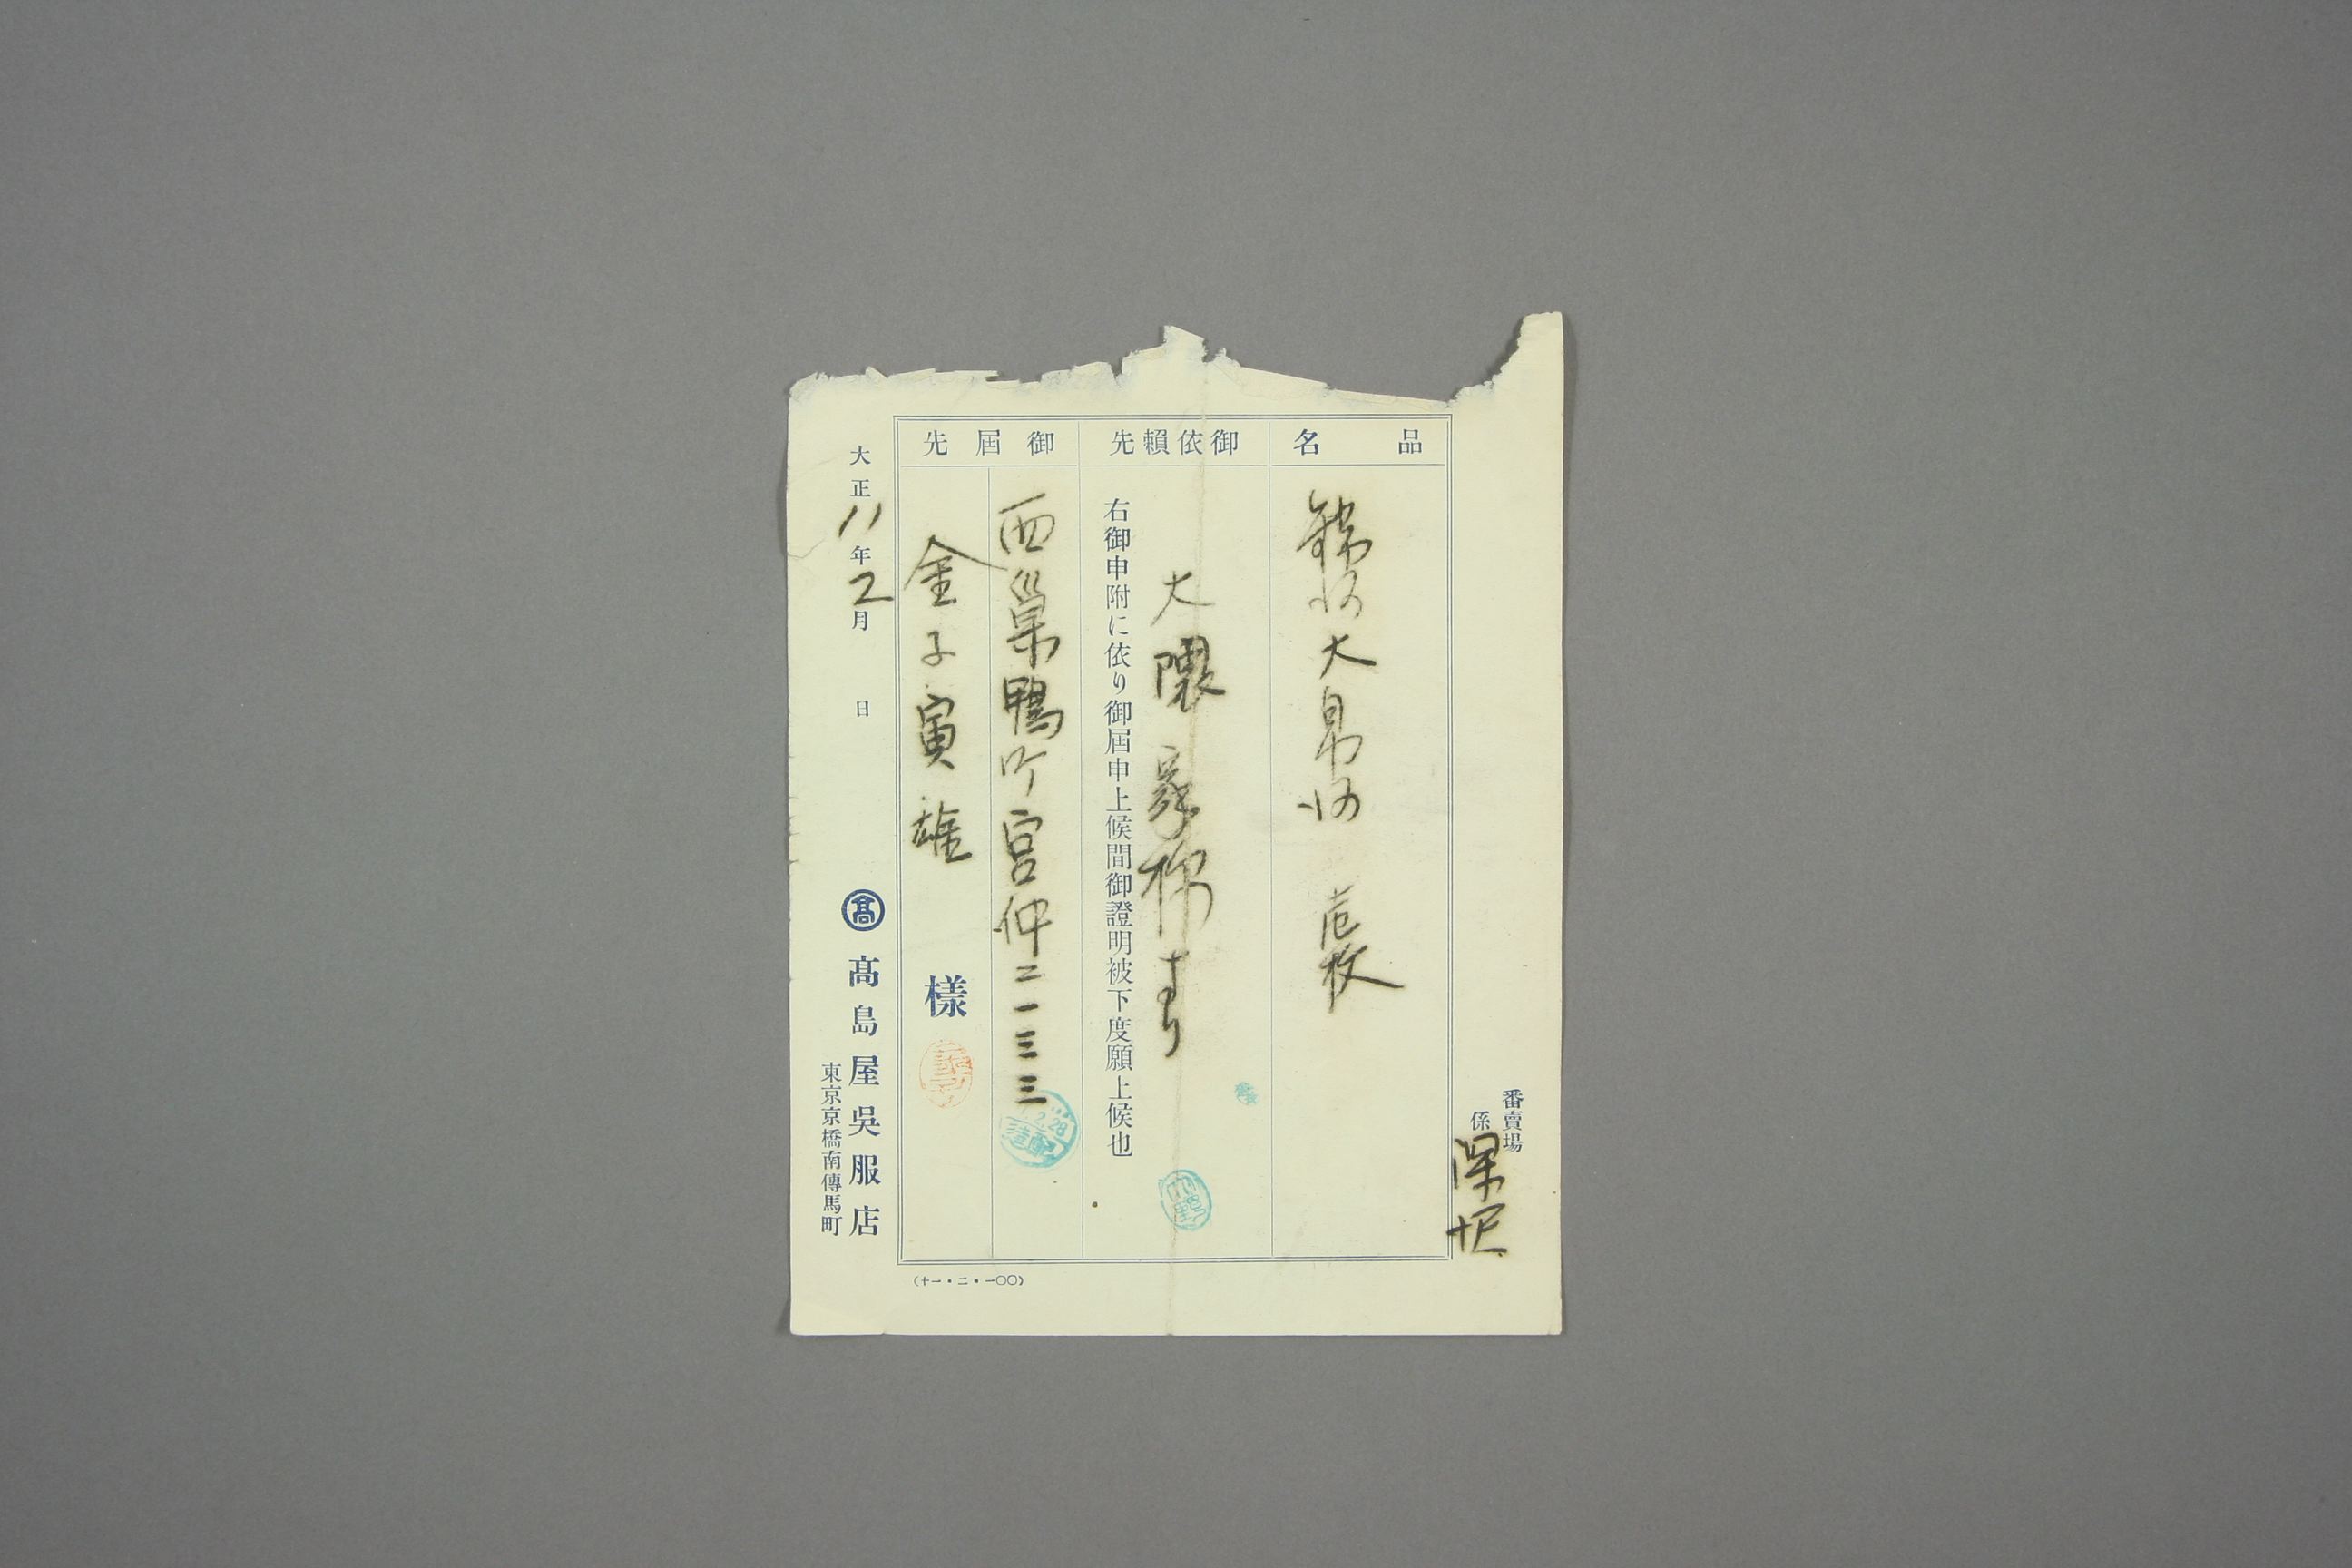 番賣場
係 深沢
品名
大
壱枚
御依賴先
大隈 家 様 より
右御申附に依り御屆申上候間御證明被下度願上候也
御屆先
西巣鴨町宮仲二一三三
金子寅雄 樣
大正11年2月 日
髙島屋吳服店
東京京橋南傳馬町
(十一・二・一〇〇)